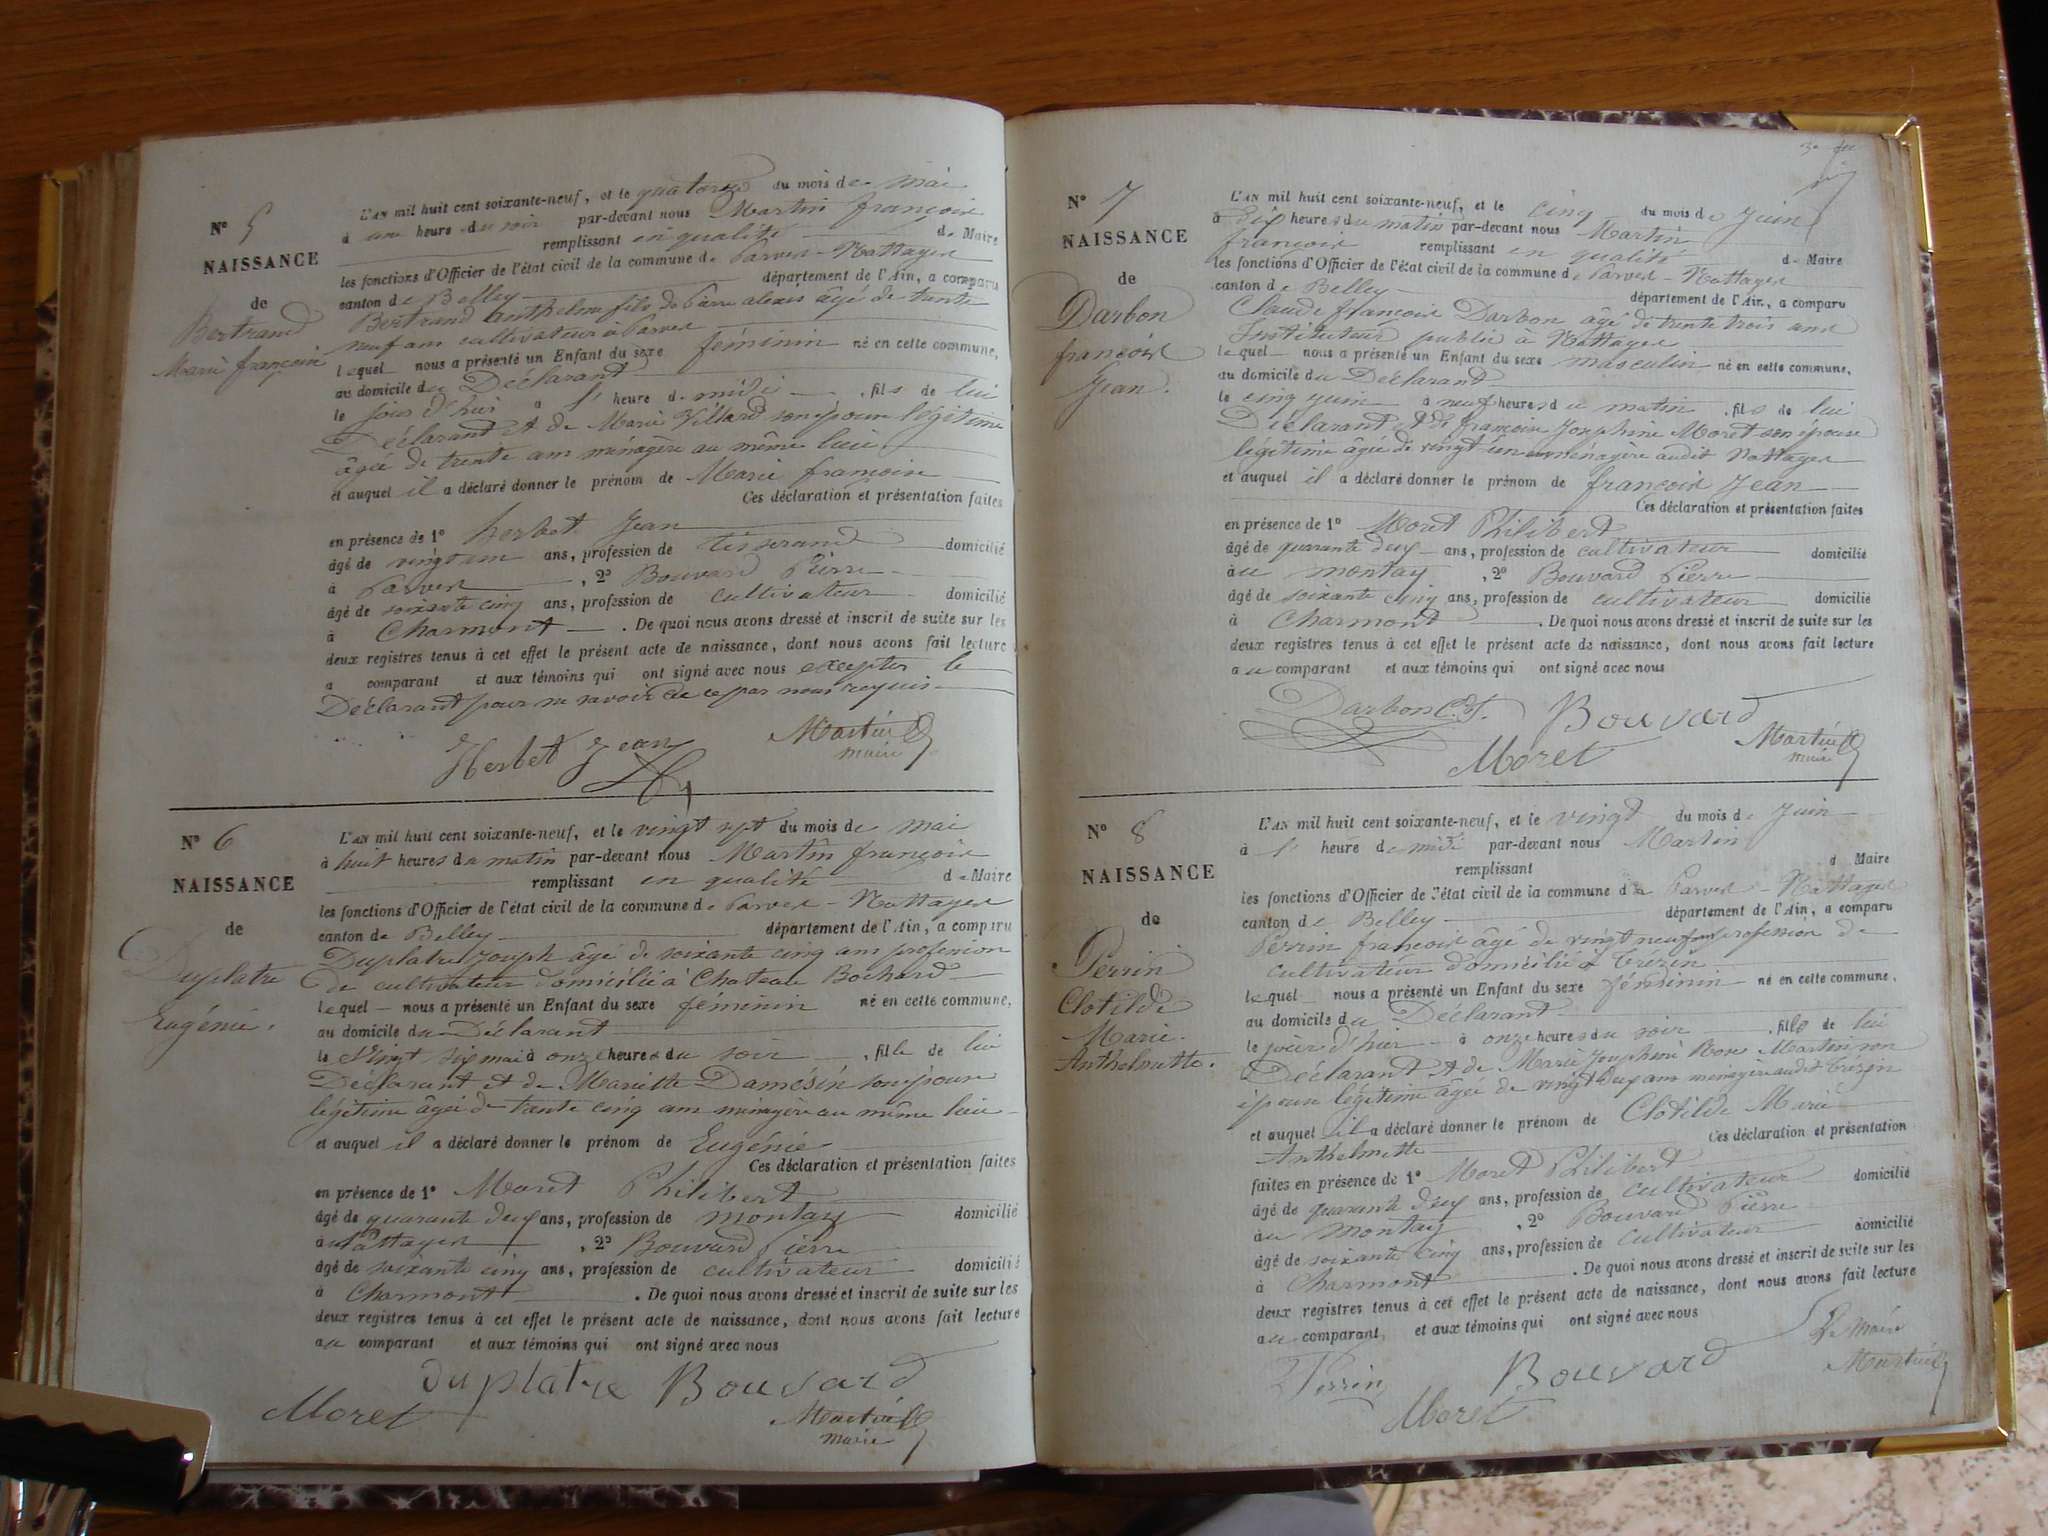 N° 5
NAISSANCE
de
Bertrand
Marie françoise
L'AN mil huit cent soixante-neuf, et le quatorze du mois de mai
à une heure du soir par-devant nous Martin françois
remplissant en qualité de Maire
les fonctions d'Officier de l'état civil de la commune de Parves-Nattages
canton de Belley département de l'Ain, a comparu
Bertrand Anthelme fils de Pierre alexis âgé de trente
neuf ans cultivateur à Parves
lequel nous a présenté un Enfant du sexe féminin né en cette commune,
au domicile du Déclarant
le jour d'hui à l' heure de midi , fils de lui
Déclarant et de Marie Villard son épouse légitime
âgée de trente ans ménagère au même lieu
et auquel il a déclaré donner le prénom de Marie françoise
Ces déclaration et présentation faites
en présence de 1° herbet Jean
âgé de vingt un ans, profession de tisserand domicilié
à Parves , 2° Bouvard Pierre
âgé de soixante cinq ans, profession de cultivateur domicilié
à Charmont . De quoi nous avons dressé et inscrit de suite sur les
deux registres tenus à cet effet le présent acte de naissance, dont nous avons fait lecture
a comparant et aux témoins qui ont signé avec nous excepter le
Déclarant pour ne savoir de ce par nous requis
Herbet Jean
Martin
maire
N° 6
NAISSANCE
de
Duplatre
Eugénie.
L'AN mil huit cent soixante-neuf, et le vingt sept du mois de mai
à huit heures du matin par-devant nous Martin françois
remplissant en qualité de Maire
les fonctions d'Officier de l'état civil de la commune de Parves-Nattages
canton de Belley département de l'Ain, a comparu
Duplatre Joseph âgé de soixante cinq ans profession
de cultivateur domicilié à Chateau Bochard
lequel nous a présenté un Enfant du sexe féminin né en cette commune,
au domicile du Déclarant
le vingt six mai à onze heures du soir , fille de lui
Déclarant et de Mariette Damésin son épouse
légitime âgée de trente cinq ans ménagère au même lieu
et auquel il a déclaré donner le prénom de Eugénie
Ces déclaration et présentation faites
en présence de 1° Moret Philibert
âgé de quarante deux ans, profession de montay domicilié
à Nattages , 2° Bouvard Pierre
âgé de soixante cinq ans, profession de cultivateur domicilié
à Charmont . De quoi nous avons dressé et inscrit de suite sur les
deux registres tenus à cet effet le présent acte de naissance, dont nous avons fait lecture
au comparant et aux témoins qui ont signé avec nous
duplatre Bouvard
Moret
Martin
maire
N° 7
NAISSANCE
de
Darbon
françois
Jean.
L'AN mil huit cent soixante-neuf, et le cinq du mois de Juin
à dix heures du matin par-devant nous Martin
françois remplissant en qualité de Maire
les fonctions d'Officier de l'état civil de la commune de Parves-Nattages
canton de Belley département de l'Ain, a comparu
Claude françois Darbon âgé de trente trois ans
Instituteur public à Nattages
lequel nous a présenté un Enfant du sexe masculin né en cette commune,
au domicile du Déclarant
le cinq juin à neuf heures du matin , fils de lui
Déclarant et de françoise Josephine Moret son épouse
légitime âgée de vingt un ménagère audit Nattages
et auquel il a déclaré donner le prénom de françois Jean
Ces déclaration et présentation faites
en présence de 1° Moret Philibert
âgé de quarante deux ans, profession de cultivateur domicilié
au montay , 2° Bouvard Pierre
âgé de soixante cinq ans, profession de cultivateur domicilié
à Charmont . De quoi nous avons dressé et inscrit de suite sur les
deux registres tenus à cet effet le présent acte de naissance, dont nous avons fait lecture
au comparant et aux témoins qui ont signé avec nous
Darbon C.F. Bouvard
Moret
Martin
maire
N° 8
NAISSANCE
de
Perrin
Clotilde
Marie
Anthelmette.
L'AN mil huit cent soixante-neuf, et le vingt du mois de Juin
à l' heure de midi par-devant nous Martin
remplissant d Maire
les fonctions d'Officier de l'état civil de la commune de Parves-Nattages
canton de Belley département de l'Ain, a comparu
Perrin françois âgé de vingt neuf ans profession de
cultivateur domicilié à Trézin
lequel nous a présenté un Enfant du sexe féminin né en cette commune,
au domicile du Déclarant
le jour d'hier à onze heures du soir , fille de lui
Déclarant et de Marie Josephine Rose Martin son
épouse légitime âgée de vingt deux ans ménagère audit Trézin
et auquel il a déclaré donner le prénom de Clotilde Marie
Anthelmette Ces déclaration et présentation
faites en présence de 1° Moret Philibert
âgé de quarante deux ans, profession de cultivateur domicilié
au montay , 2° Bouvard Pierre
âgé de soixante cinq ans, profession de cultivateur domicilié
à Charmont . De quoi nous avons dressé et inscrit de suite sur les
deux registres tenus à cet effet le présent acte de naissance, dont nous avons fait lecture
au comparant et aux témoins qui ont signé avec nous
Perrin Bouvard
Moret
Le Maire
Martin